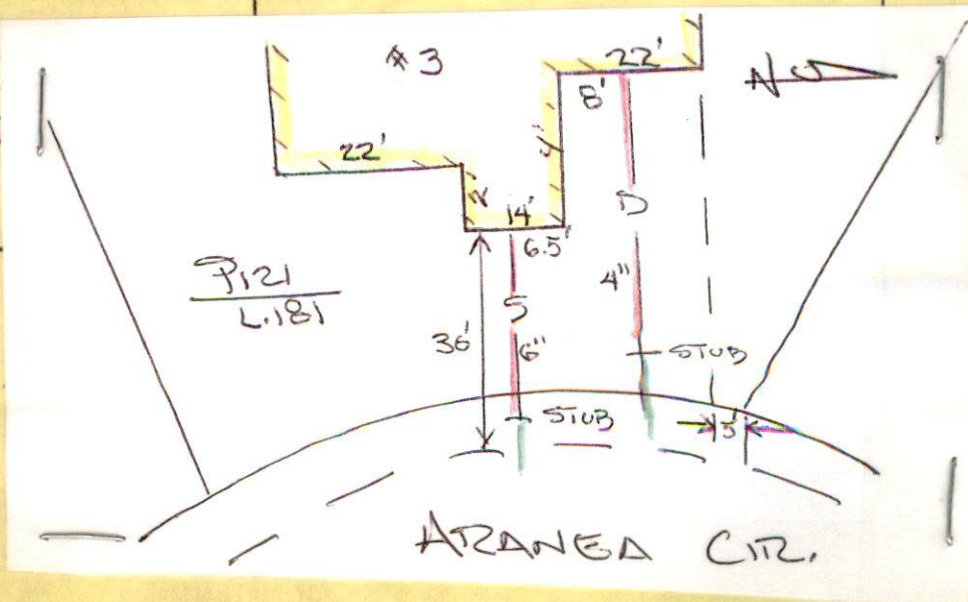 #3
22'
N
8'
22'
14'
6.5'
D
P.121
L.181
S
4"
36'
6"
STUB
STUB
5'
ARANEA CIR.